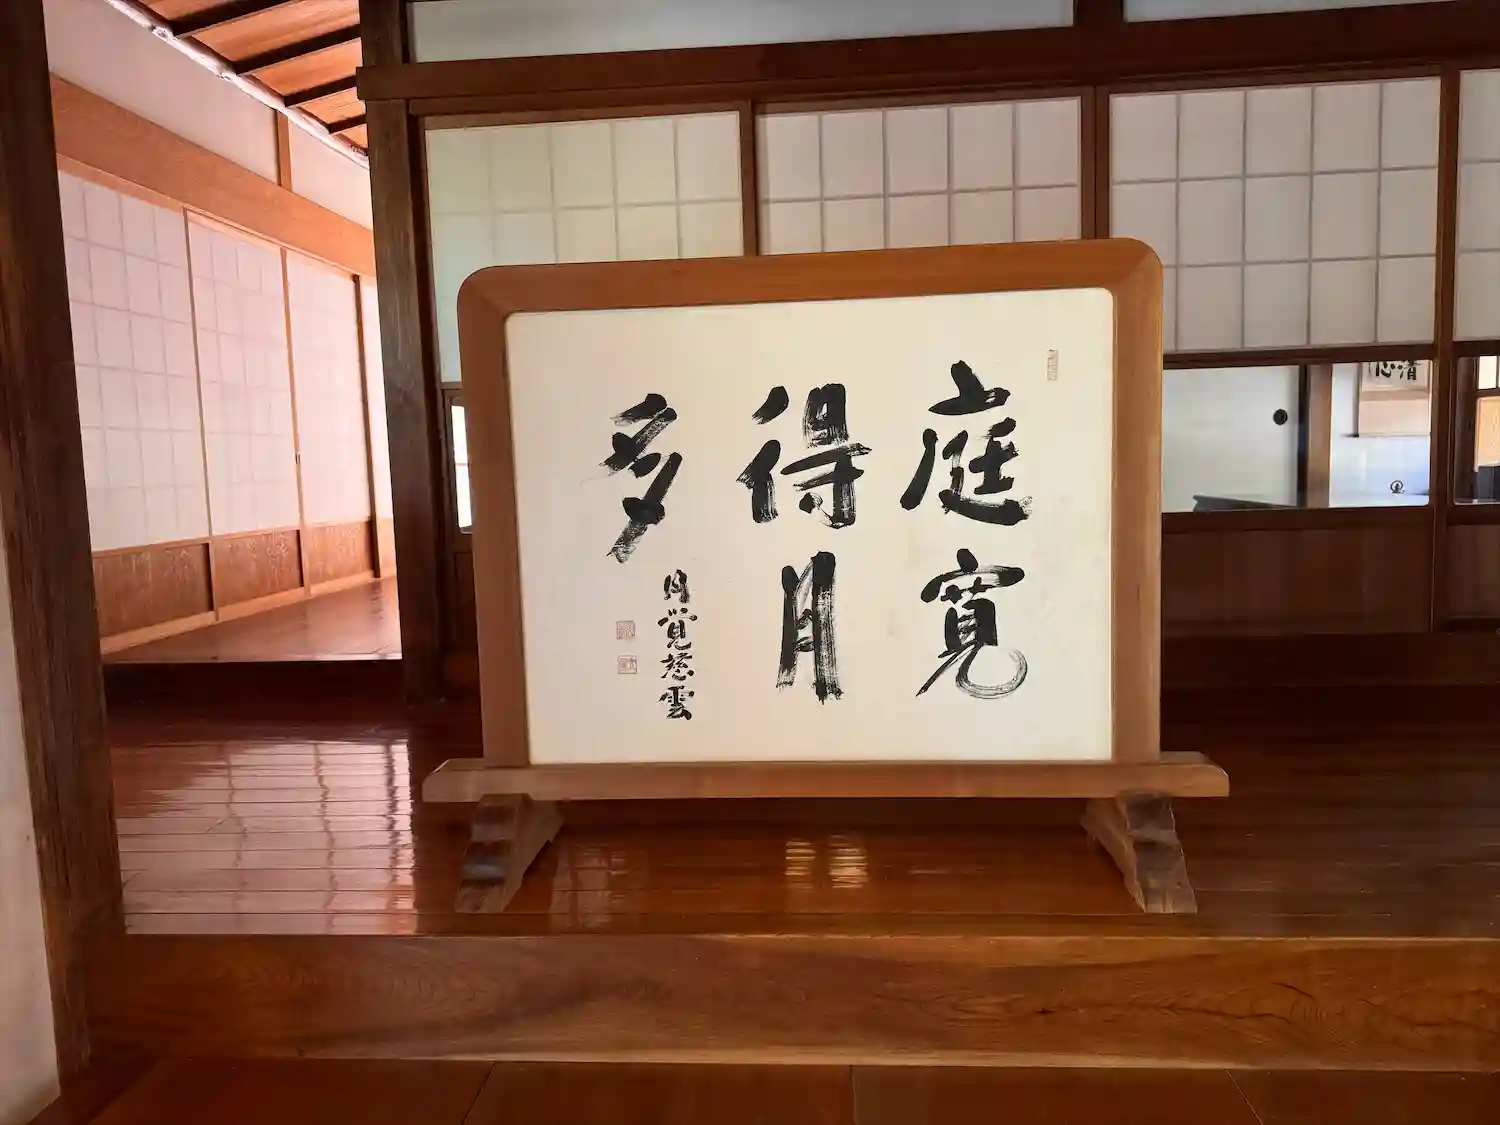 庭寛
得月
多
月覚慈雲
清心